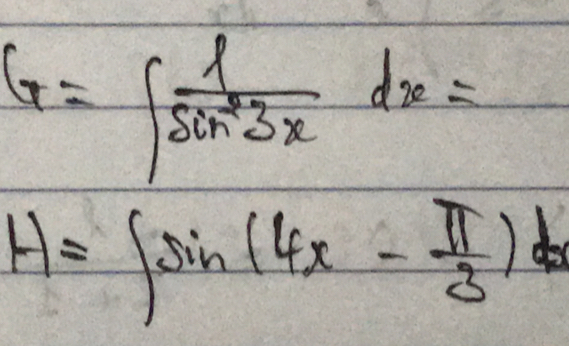 G = ∫ 1/sin²3x dx =
H = ∫ sin(4x - π/3) dx